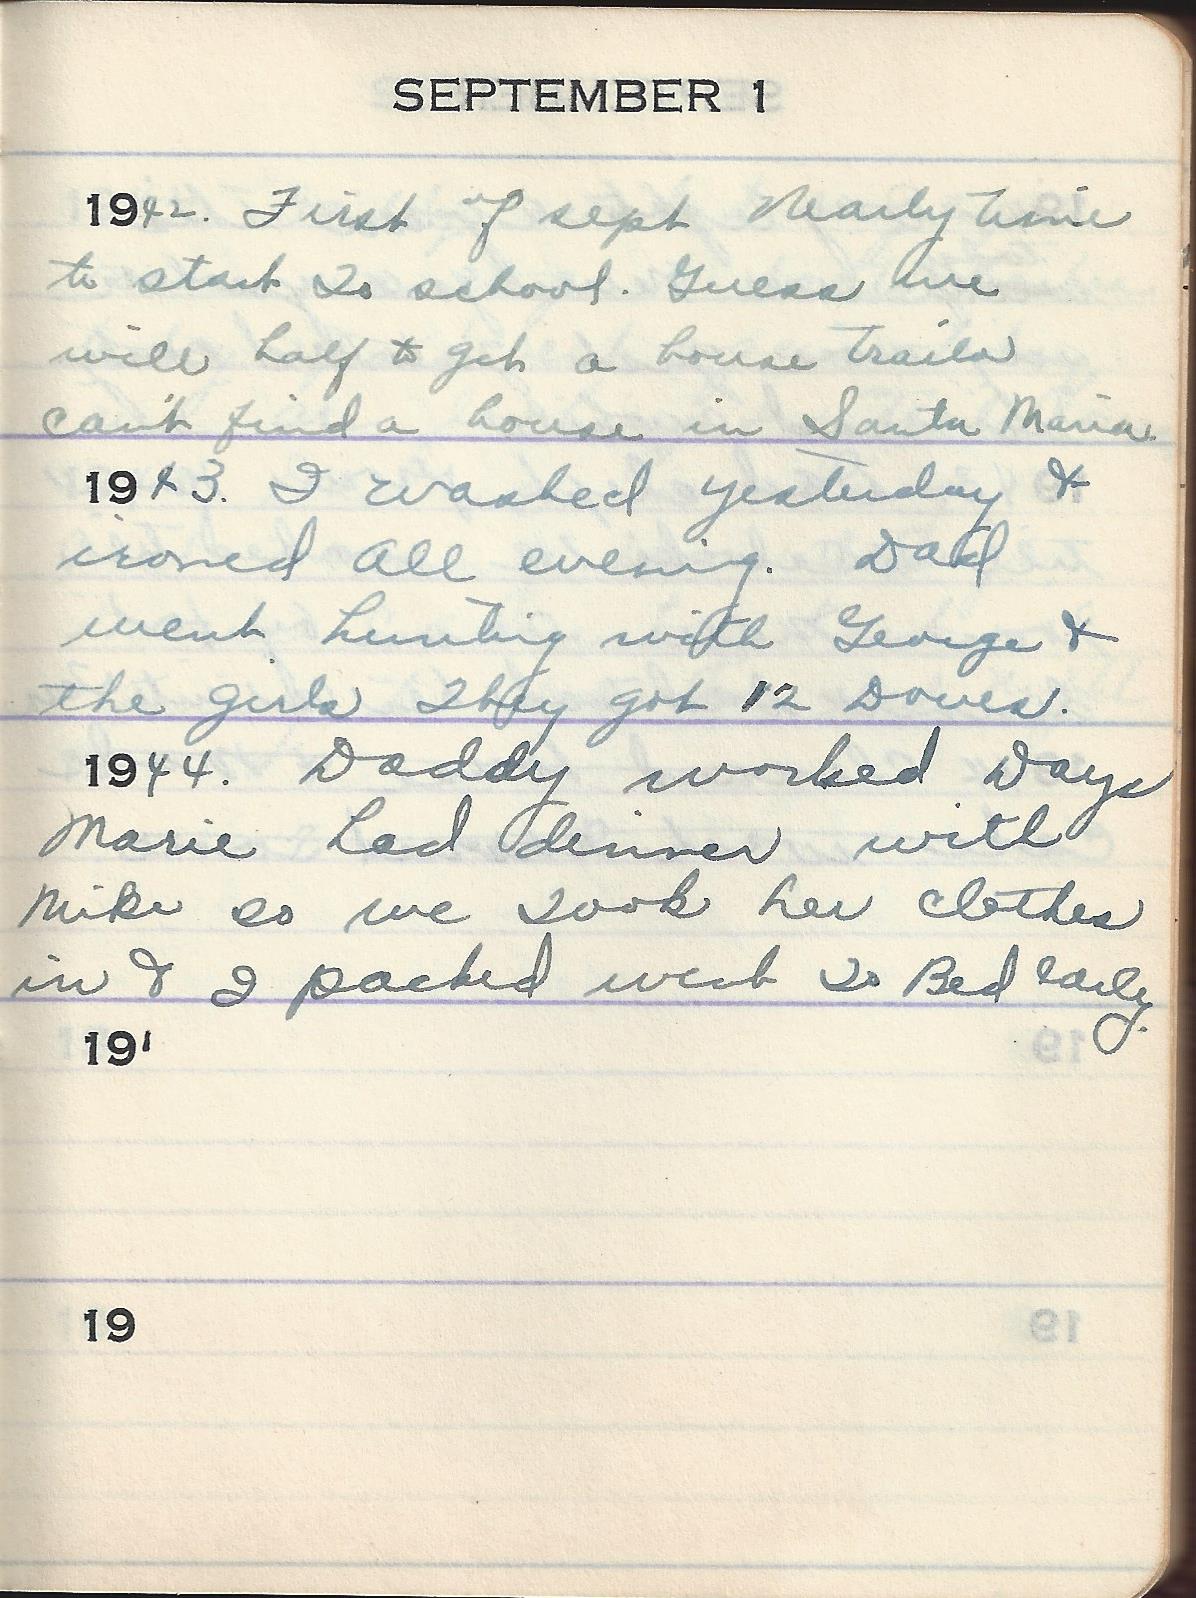 SEPTEMBER 1
1942. First of sept Nearly time
to start to school. Guess we
will half to get a house trailer
can't find a house in Santa Maria.
1943. I washed yesterday &
ironed all evening. Dad
went hunting with George &
the girls They got 12 Doves.
1944. Daddy worked Days
Marie had dinner with
Mike so we took her clothes
in & I packed went to Bed early.
19
19